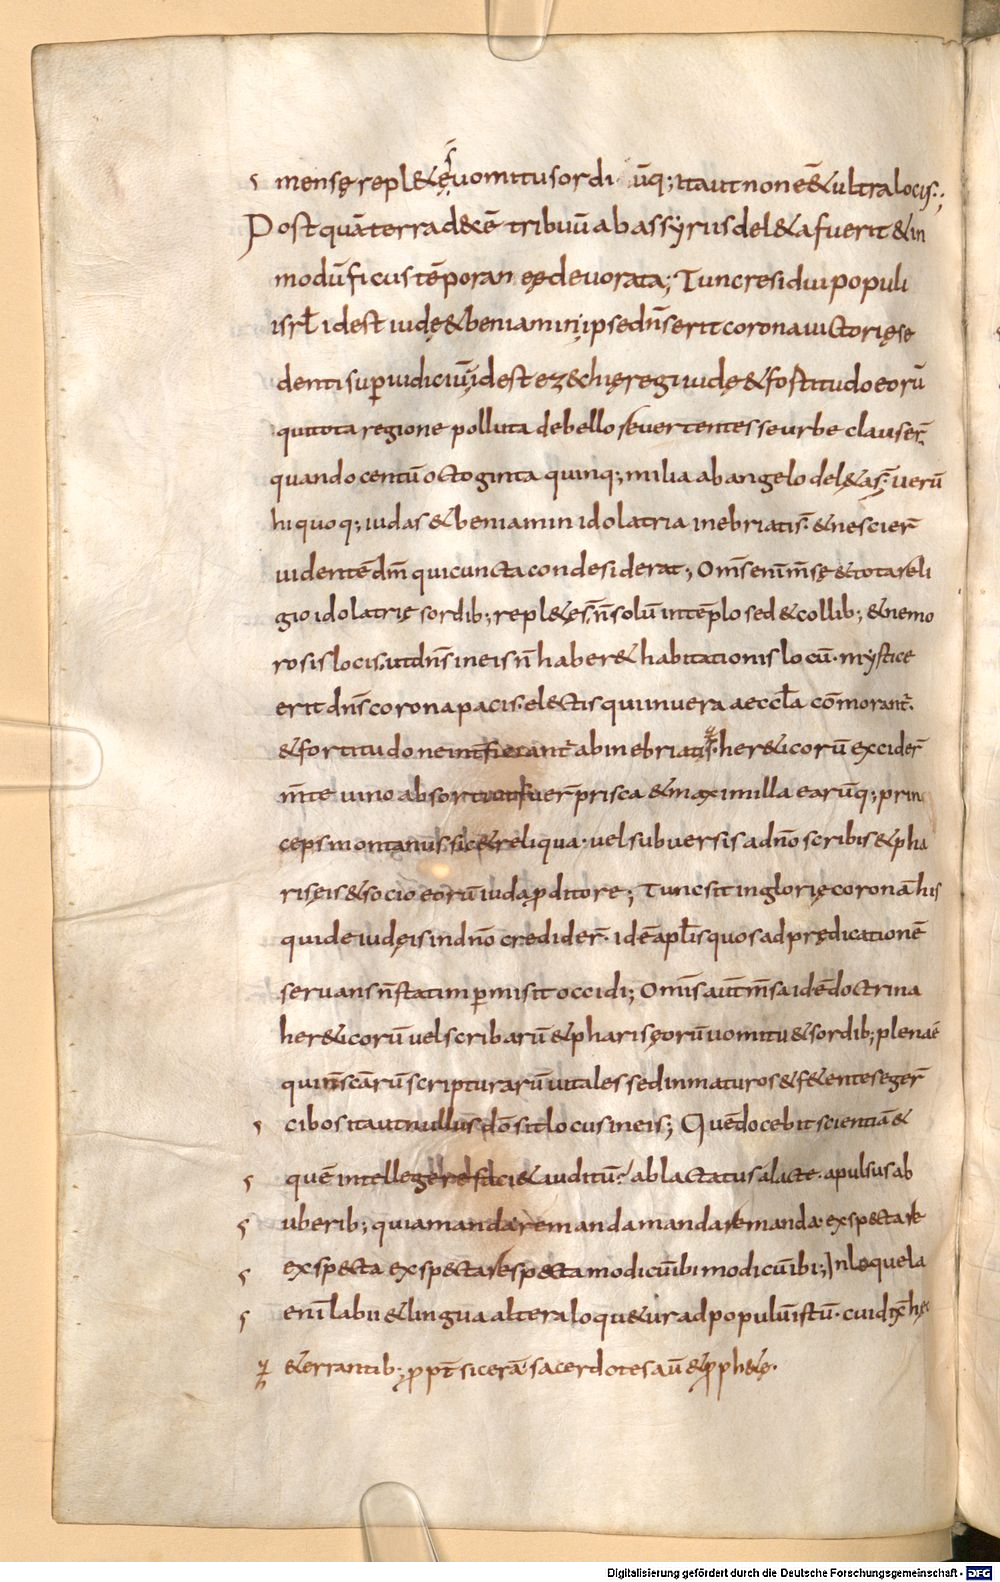 mensę repl&ęs uomitu sordi ūq; ita ut non ē & ultra locis:;
Postquā terra decē tribuū ab assyriis del&a fuerit & in
modū ficus tēporaneę deuorata; Tunc residui populi
isrł idest iudę & beniamin ipse dn̄s erit corona uictorię se
denti sup iudiciū; idest ezechię regi iudę & fostitudo eorū
qui tota regione polluta de bello reuertentes se urbe clauser̄
quando centū octoginta quinq; milia ab angelo del&a s̄; uerū
hi quoq; iudas & beniamin idolatria inebriati s̄ & nescier̄
uidentē dm̄ qui cuncta considerat; Om̄s enim m̄sę & tota reli
gio idolatrię sordib; repl&ę s̄; n̄ solū in tēplo sed & collib; & nemo
rosis locis, ut dn̄s in eis n̄ haber& habitationis locū. mystice
erit dn̄s corona pacis. electis qui in uera aecclā cōmorant̄.
& fortitudo ne int̄ficiant̄ ab inebriatis. her&icorū excider̄
m̄te uino absorti ut fuer̄ prisca & maximilla earūq; prin
ceps montanus. sic & reliqua. uel subuersis a dn̄o scribis & pha
risęis & socio eorū iuda pditore; Tunc sit in glorię coronā his
qui de iudęis in dn̄o credider̄. idē apłis quos ad prędicationē
seruans n̄ statim pmisit occidi; Omīs aut̄ m̄sa idē doctrina
her&icorū uel scribarū & pharisęorū uomitu & sordib; plena ē
qui n̄ scārū scripturarū uitales sed inmaturos & f&entes eger̄
cibos ita ut nullus dō sit locus in eis; Quē docebit scientiā &
quē intellegere faci& auditū? ablactatus a lacte. apulsus ab
uberib; quia manda remanda manda remanda. exspecta re
exspecta exspecta respecta modicū ibi modicū ibi; In loquela
enī labii & lingua altera loqu&ur ad populū istū. cui dix̄ hęc
& errantib; ꝓpt̄ sicerā. sacerdotes aū & ꝓph&ę.
Digitalisierung gefördert durch die Deutsche Forschungsgemeinschaft - DFG